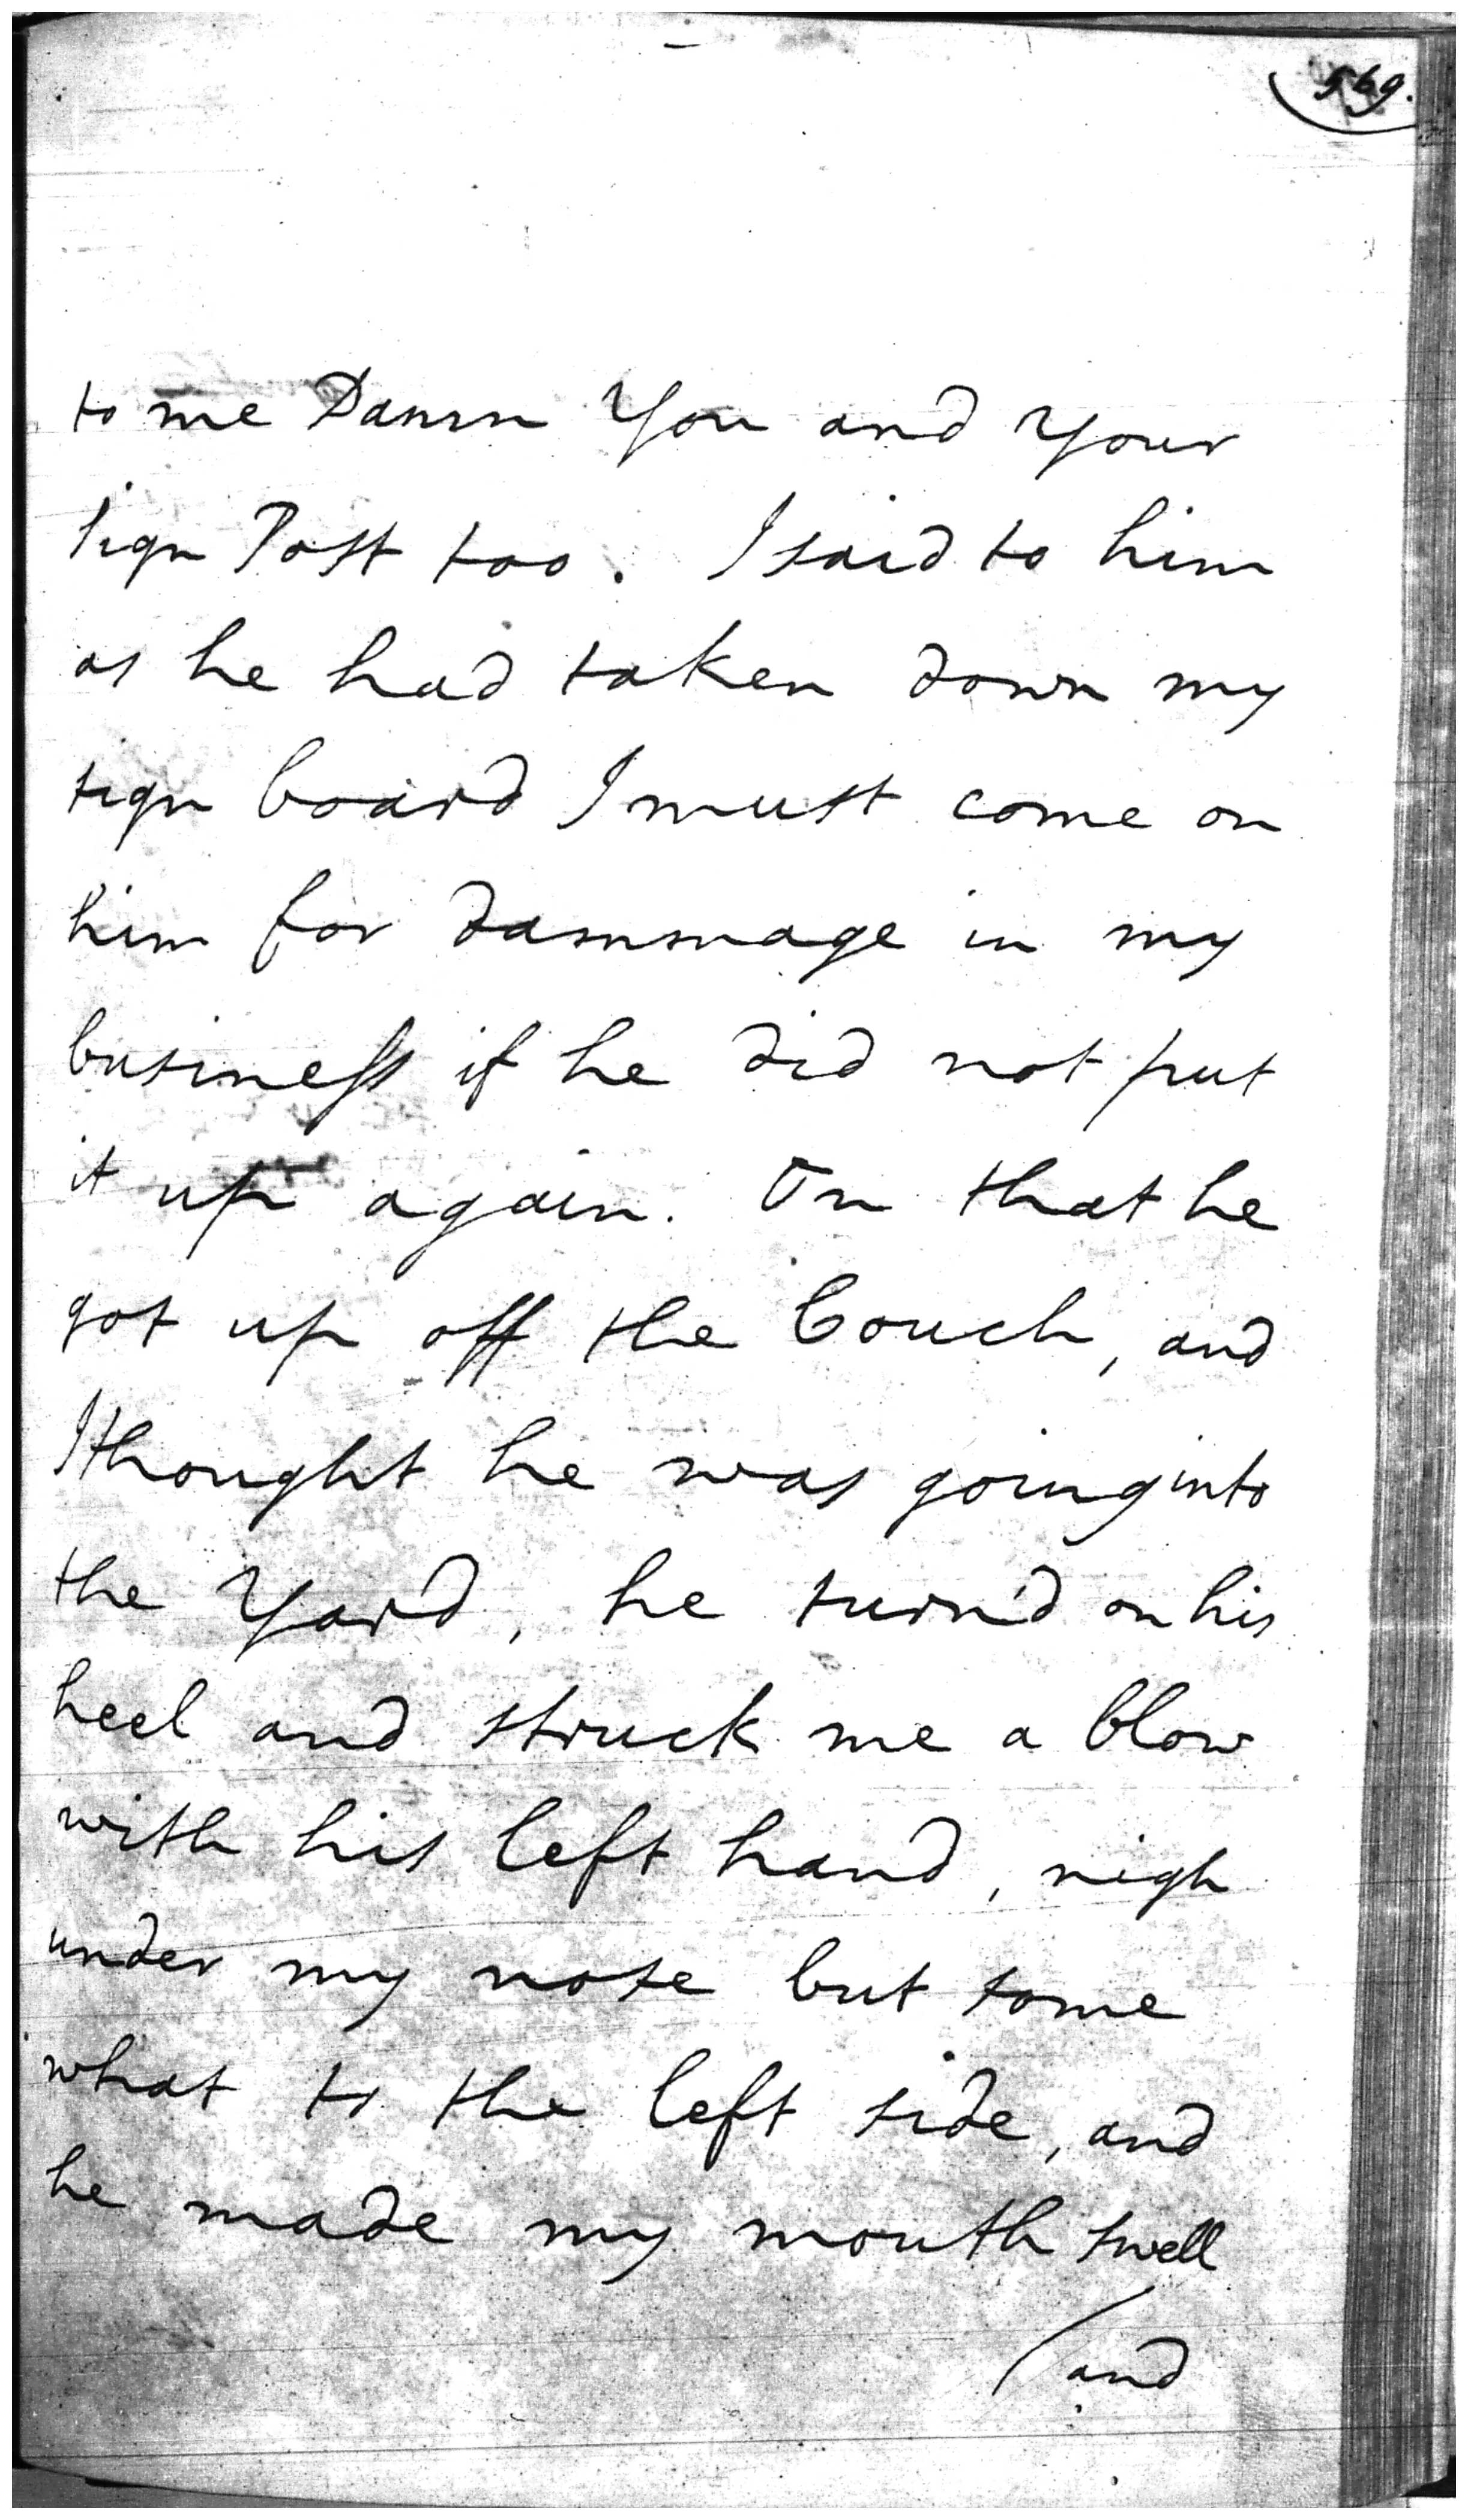 569.
to me Damn You and Your
sign Post too. I said to him
as he had taken down my
sign board I must come on
him for dammage in my
business if he did not put
it up again. On that he
got up off the Couch, and
I thought he was going into
the Yard, he turn'd on his
heel and struck me a blow
with his left hand, nigh
under my nose but some
what to the left side, and
he made my mouth swell
(and